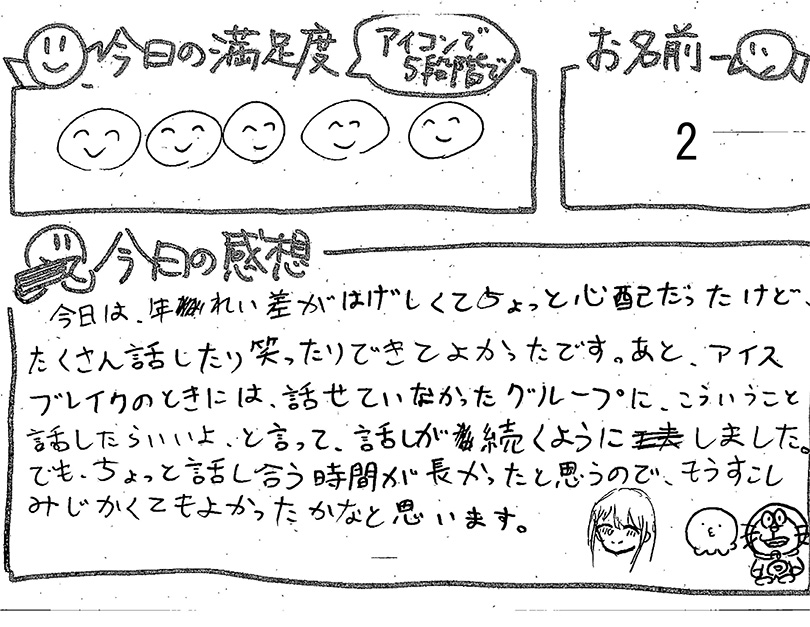 今日の満足度
アイコンで
5段階で
お名前
2
今日の感想
今日は、年れい差がはげしくてちょっと心配だったけど、
たくさん話したり笑ったりできてよかったです。あと、アイス
ブレイクのときには、話せていなかったグループに、こういうこと
話したらいいよ、と言って、話しが続くようにしました。
でも、ちょっと話し合う時間が長かったと思うので、もうすこし
みじかくてもよかったかなと思います。